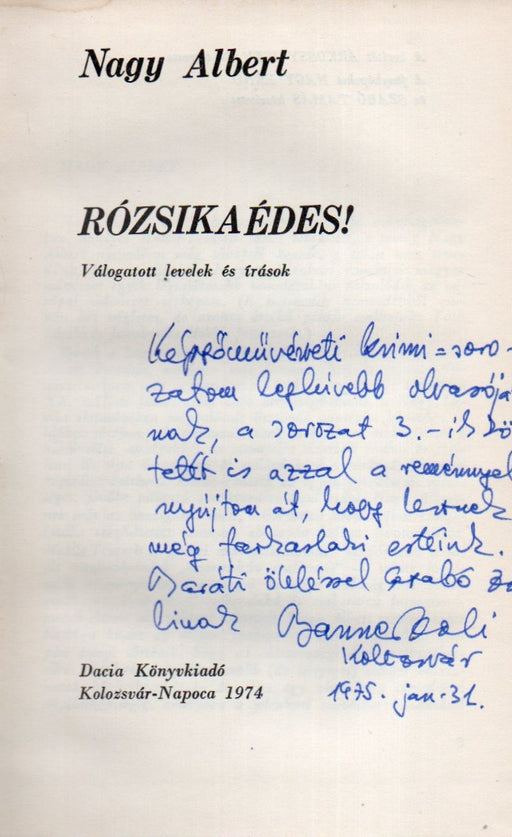 Nagy Albert
RÓZSIKA ÉDES!
Válogatott levelek és írások
Képzőművészeti krimi=soro-
zatom leghívebb olvasójá
nak, a sorozat 3.-ik kö
tetét is azzal a reménnyel
nyújtom át, hogy lesznek
még farkaslaki estéink.
Baráti öleléssel Szabó Zo
linak Banner Zoli
Kolozsvár
1975. jan. 31.
Dacia Könyvkiadó
Kolozsvár-Napoca 1974